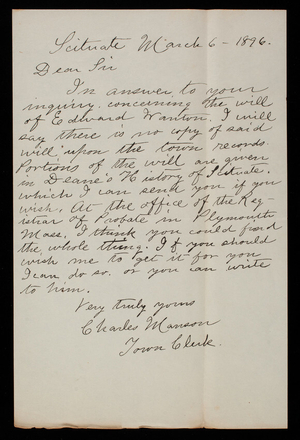 Scituate March 6 - 1896.
Dear Sir
In answer to your
inquiry, concerning the will
of Edward Wanton. I will
say there is no copy of said
will upon the town records.
Portions of the will are given
in Deane's History of Scituate.
which I can send you if you
wish. At the office of the Reg-
istrar of Probate in Plymouth
Mass. I think you could find
the whole thing. If you should
wish me to get it for you
I can do so. or you can write
to him.
Very truly yours
Charles Manson
Town Clerk.